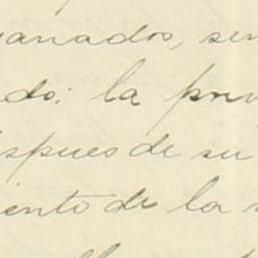 anados, sen
do: la prin
spues de su
iento de la s